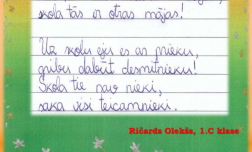 skola tās ir otras mājas!
Uz skolu eju es ar prieku,
gribu dabūt desmitnieku!
Skola tie nav nieki,
saka visi teicamnieki.
Ričards Olekšs, 1.C klase